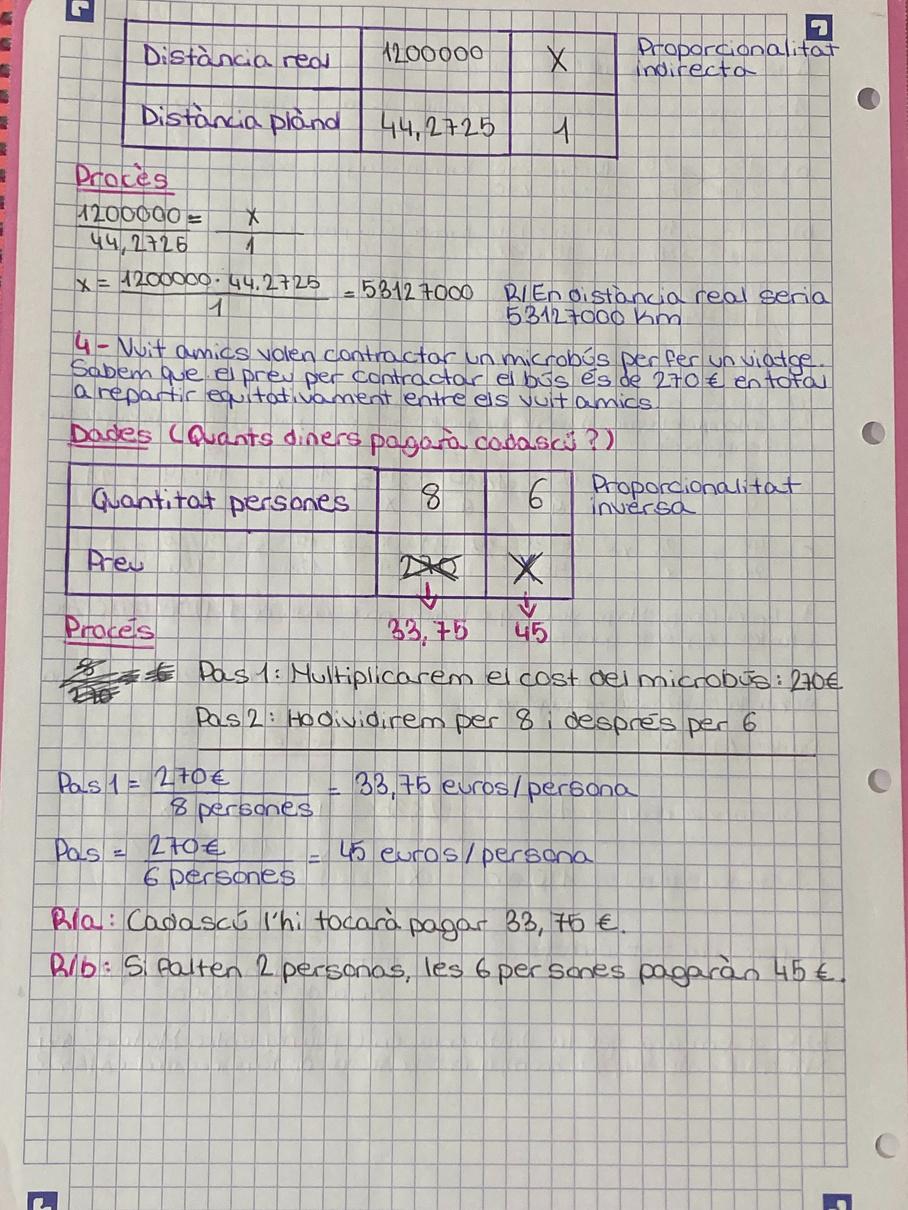 Distància real 1200000 X Proporcionalitat
indirecta
Distància plànol 44,2725 1
Procès
1200000 = x
44,2726 1
x = 1200000 · 44.2725 = 53127000 R/En distància real seria
1 53127000 km
4- Vuit amics volen contractar un microbús per fer un viatge.
Sabem que el preu per contractar el bús és de 270 € en total
a repartir equitativament entre els vuit amics.
Dades (Quants diners pagarà cadascú?)
Quantitat persones 8 6 Proporcionalitat
inversa
Preu 270 X
33,75 45
Procés
8
270
Pas 1: Multiplicarem el cost del microbús: 270€
Pas 2: Ho dividirem per 8 i després per 6
Pas 1 = 270€ = 33,75 euros/persona
8 persones
Pas = 270€ = 45 euros/persona
6 persones
R/a: Cadascú l'hi tocarà pagar 33,75 €.
R/b: Si falten 2 personas, les 6 persones pagaràn 45 €.